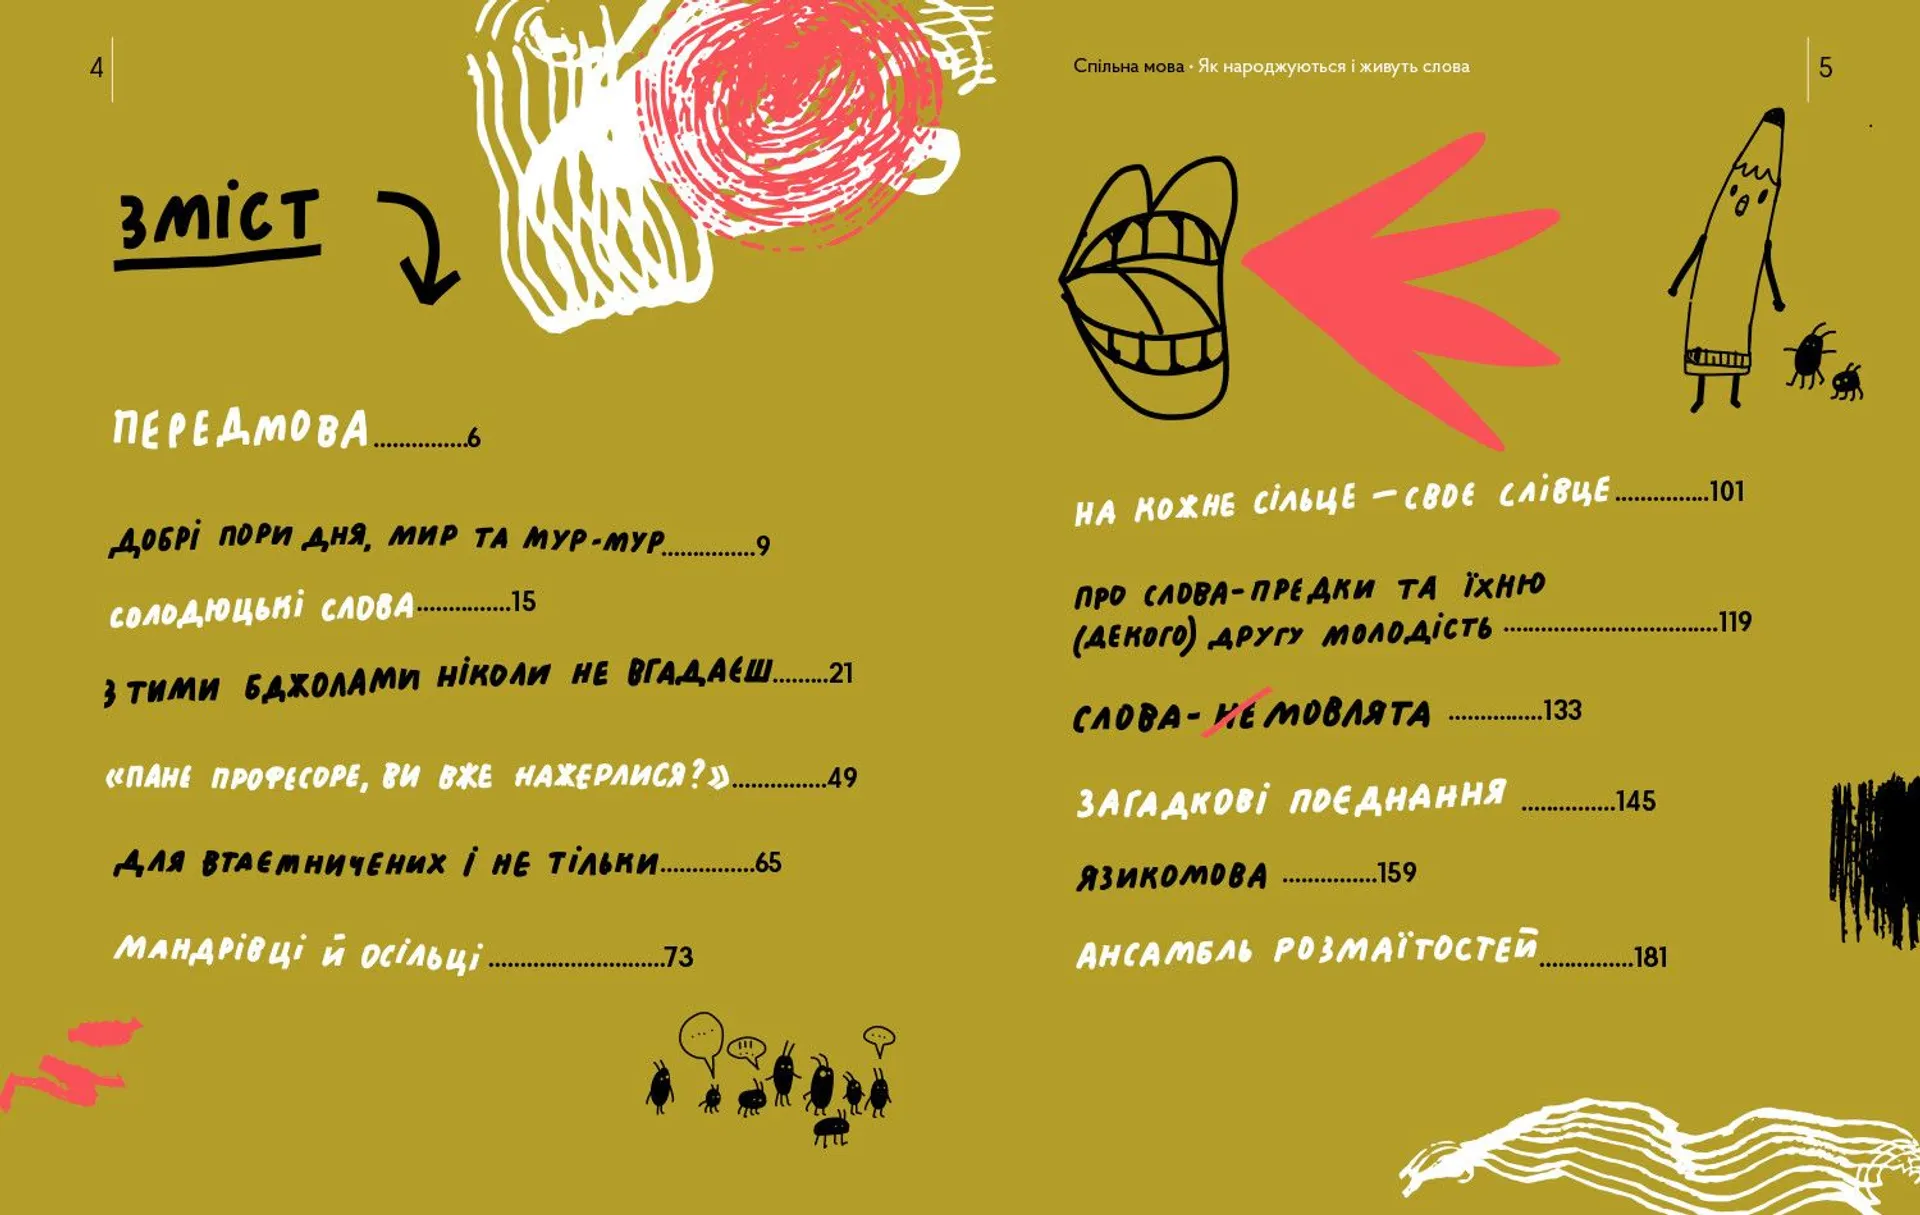 4
зміст
Передмова...............6
Добрі пори дня, мир та мур-мур...............9
Солодюцькі слова...............15
З тими бджолами ніколи не вгадаєш.........21
«Пане професоре, ви вже нажерлися?»...............49
Для втаємничених і не тільки...............65
Мандрівці й осільці............................73
Спільна мова · Як народжуються і живуть слова
5
На кожне сільце – своє слівце...............101
Про слова-предки та їхню
(декого) другу молодість ..................................119
Слова-немовлята ...............133
Загадкові поєднання ...............145
Язикомова ...............159
Ансамбль розмаїтостей...............181